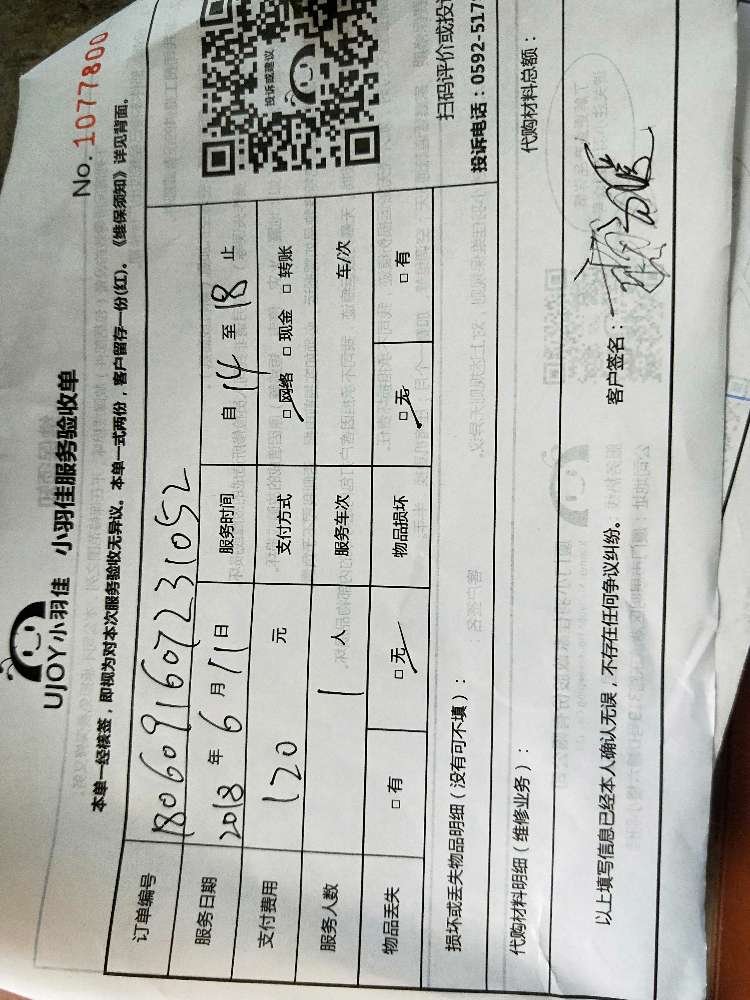 UJOY小羽佳 小羽佳服务验收单
No. 1077800
本单一经核签，即视为对本次服务验收无异议。本单一式两份，客户留存一份(红)。《维保须知》详见背面。
订单编号 1806091607231052
服务日期 2018 年 6 月 11 日 服务时间 自 14 至 18 止
支付费用 120 元 支付方式 □网络 □现金 □转账
服务人数 1 人 服务车次 车/次
物品丢失 □有 □无 物品损坏 □无 □有
投诉或建议
扫码评价或投
投诉电话：0592-517
损坏或丢失物品明细（没有可不填）：
代购材料明细（维修业务）： 代购材料总额：
以上填写信息已经本人确认无误，不存在任何争议纠纷。 客户签名：